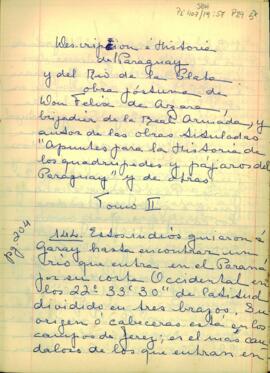 Descripción é Historia
del Paraguay
y del Rio de la Plata
obra póstuma de
Don Felix de Azara,
brijadier de la Real Armada, y
autor de las obras tituladas
"Apuntes para la Historia de
los quadrupedes y pájaros del
Paraguay" y de otras
Tomo II
Pg 204
144. Estos indios guiaron á
Garay hasta encontrar un
rio que entra en el Paraná
por su costa Occidental en
los 22° 33' 30" de latitud
dividido en tres brazos. Su
origen ó cabeceras está en los
campos de Jerez; es el mas cau
daloso de los que entran en